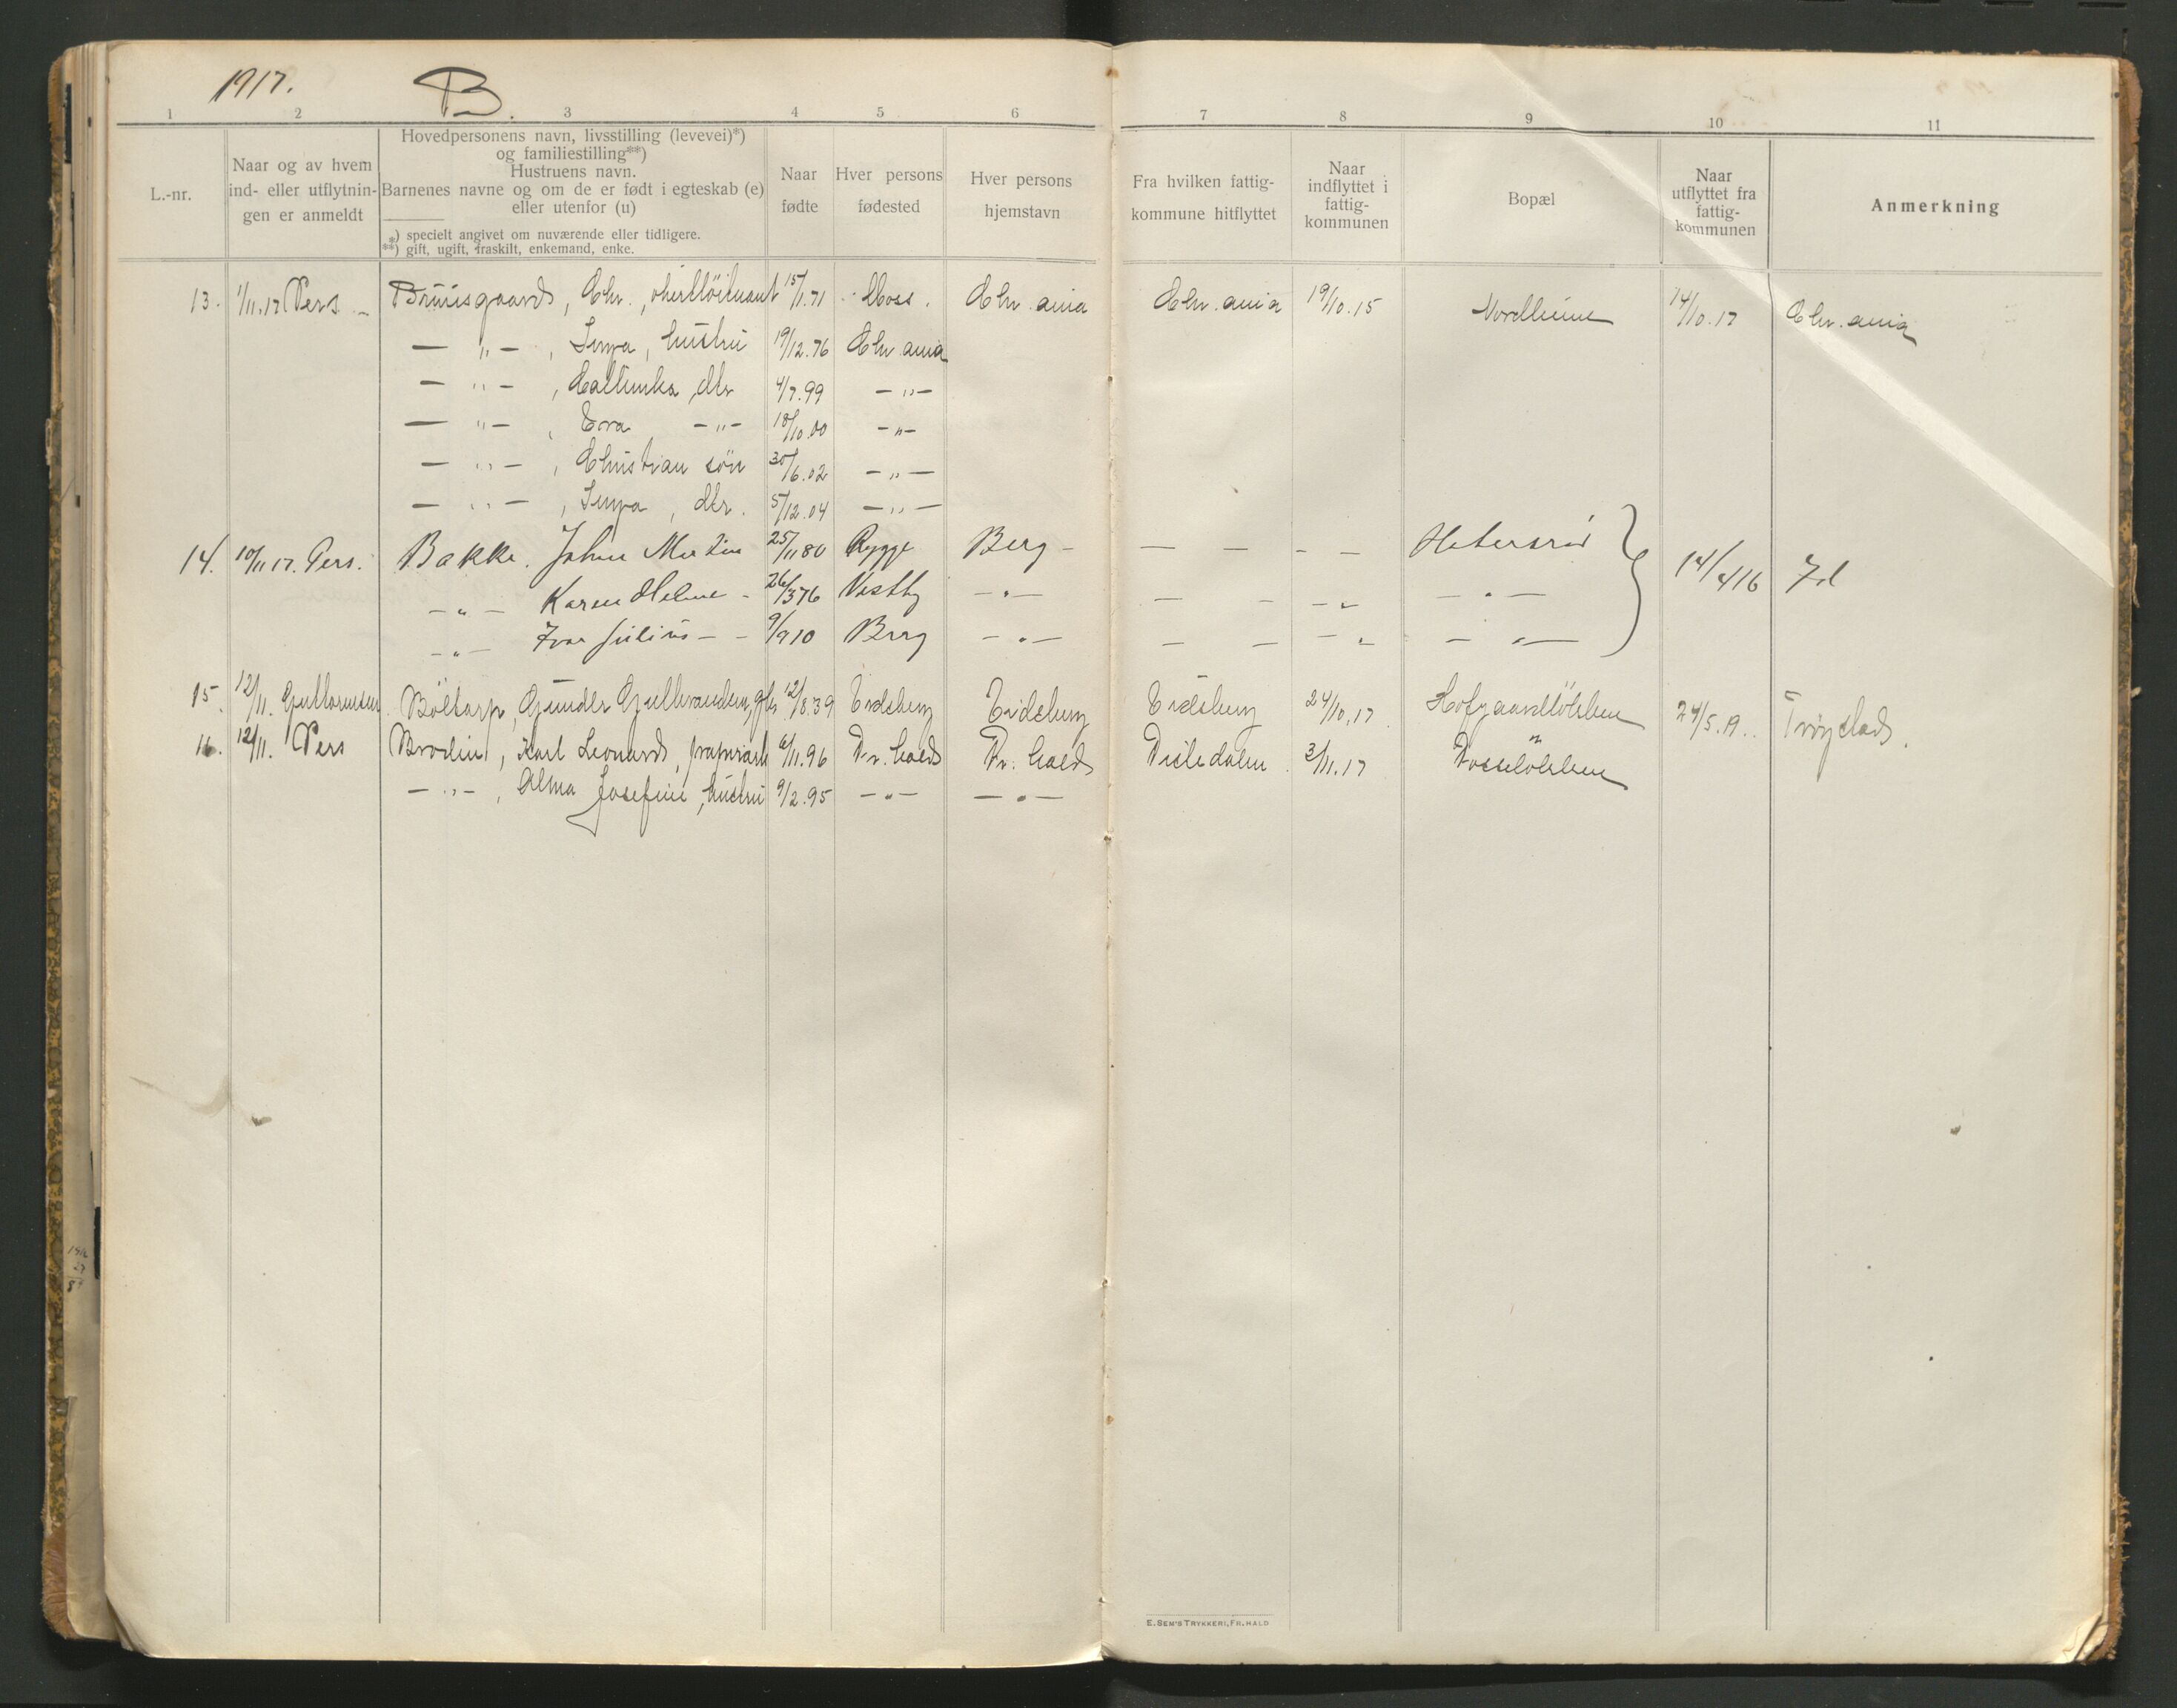 1917. B.
1 2 3 4 5 6 7 8 9 10 11
L.-nr.
Naar og av hvem
ind- eller utflytnin-
gen er anmeldt
Hovedpersonens navn, livsstilling (levevei)*)
og familiestilling**)
Hustruens navn.
Barnenes navne og om de er født i egteskab (e)
eller utenfor (u)
*) specielt angivet om nuværende eller tidligere.
**) gift, ugift, fraskilt, enkemand, enke.
Naar
fødte
Hver persons
fødested
Hver persons
hjemstavn
Fra hvilken fattig-
kommune hitflyttet
Naar
indflyttet i
fattig-
kommunen
Bopæl
Naar
utflyttet fra
fattig-
kommunen
Anmerkning
13. 1/11.17 Pers - Bruusgaard, Chr., 15/1.71 Moss. Chr.ania Chr.ania 19/10.15 14/10.17 Chr.ania
— " — , hustru 19/12.76 Chr.ania
— " — , dtr 4/7.99 — " —
— " — , Eva — " — 18/10.00 — " —
— " — , Christian søn 30/6.02 — " —
— " — , dtr. 5/12.04 — " —
14. 10/11 17. Pers. Bakke. Johan Martin 25/11 80 Rygge Berg - — — — — 14/4 16 Id
— " — Karen Helene - 26/3 76 Vestby — " — — — — " — " —
— " — Ivar Julius — - 9/9 10 Berg — " — — — — " — " —
15. 12/11. Guttormsen Böltorp, 12/8.39 Eidsberg Eidsberg Eidsberg 24/10.17. 24/5.19.. Trøgstad.
16. 12/11. Pers Brodin, Karl Leonard, 6/11.96 Fr. hald Fr. hald Tistedalen 3/11.17
— " — , Alma Josefine, hustru 9/2.95 — " — — " —
E. SEM'S TRYKKERI, FR. HALD